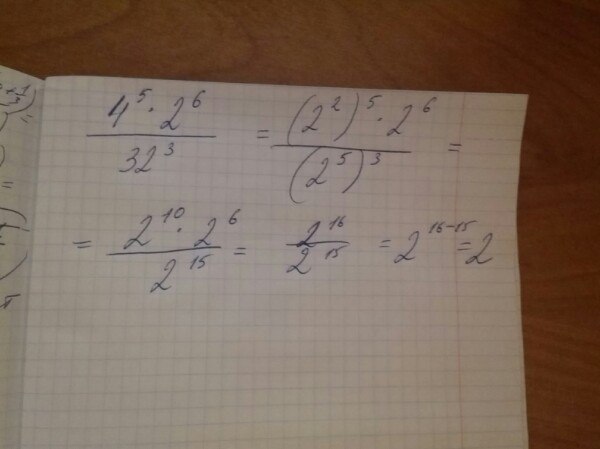 4⁵·2⁶ / 32³ = (2²)⁵·2⁶ / (2⁵)³ =
= 2¹⁰·2⁶ / 2¹⁵ = 2¹⁶ / 2¹⁵ = 2¹⁶⁻¹⁵ = 2